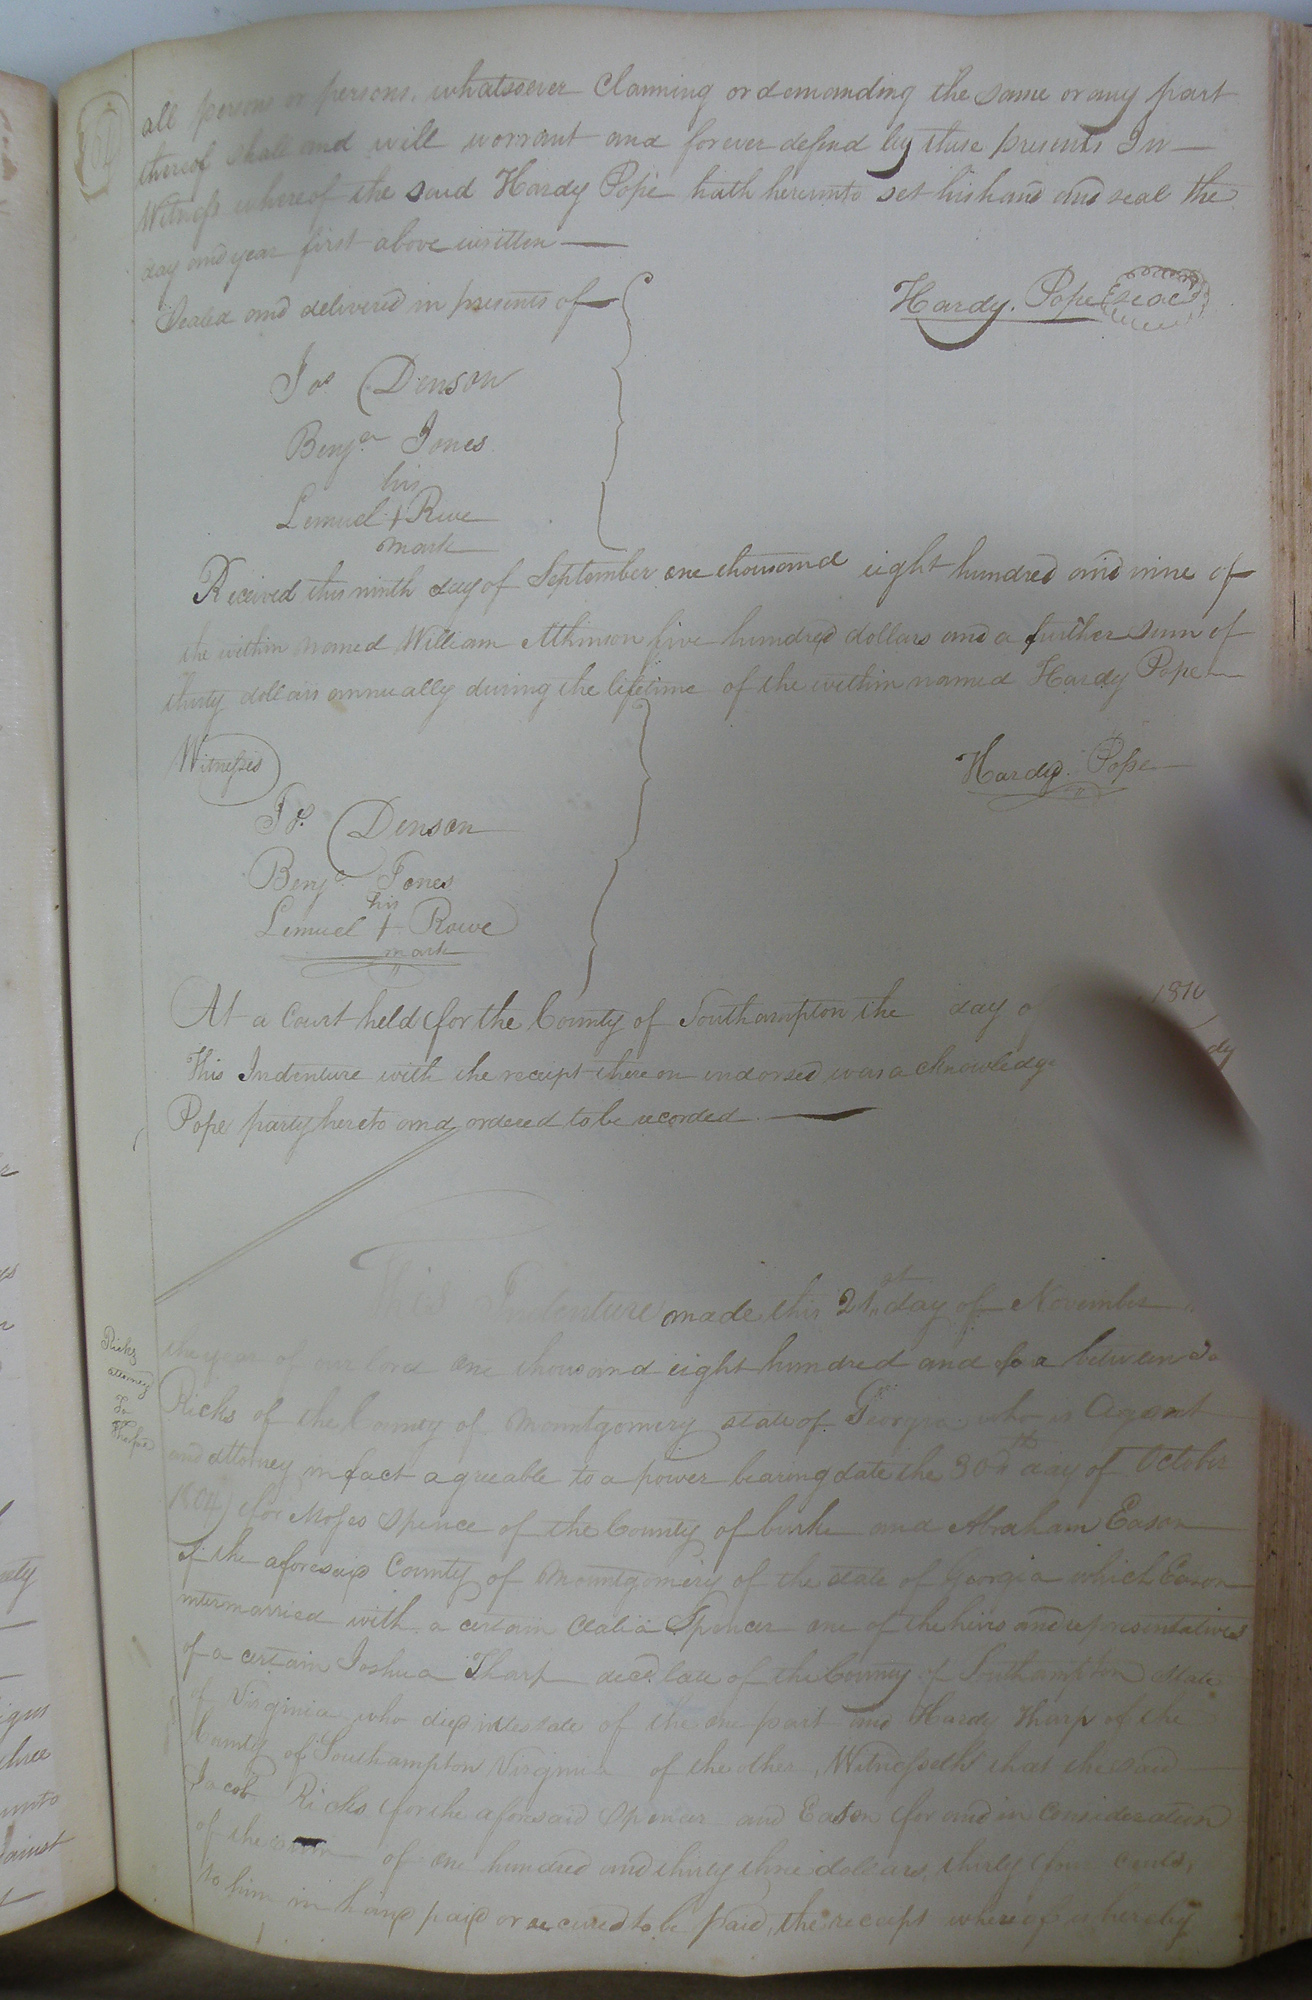 all persons or persons whatsoever Claiming or demanding the same or any part
thereof shall and will warrant and forever defend by these presents In
Witness whereof the said Hardy Pope hath hereunto set his hand and seal the
day and year first above written
Sealed and delivered in presents of
Hardy. Pope (seal)
Jos Denson
Benja Jones
his
Lemuel + Rowe
mark
Received this ninth day of September one thousand eight hundred and nine of
the within named William Atkinson five hundred dollars and a further sum of
thirty dollars annually during the lifetime of the within named Hardy Pope
Witnesses
Hardy. Pope
Jos. Denson
Benja Jones
his
Lemuel + Rowe
mark
At a Court held for the County of Southampton the day of 1810
This Indenture with the receipt thereon indorsed was acknowledge
Pope party hereto and ordered to be recorded
This Indenture made this 21st day of November
Ricks
attorney
To
Tharpe
the year of our lord one thousand eight hundred and between Ja
Ricks of the County of Mountgomery state of Georgia who is Agent
and attorney in fact agreeable to a power bearing date the 30th day of October
1804) for Moses Spence of the County of burke and Abraham Eason
of the aforesaid County of Mountgomery of the state of Georgia which Eason
intermarried with a certain Spencer one of the heirs and representatives
of a certain Joshua Tharp decd. late of the County of Southampton State
of Virginia who died intestate of the one part and Hardy Tharp of the
County of Southampton Virginia of the other Witnesseth that the said
Jacob Ricks for the aforesaid Spencer and Eason for and in Consideration
of the sum of one hundred and thirty three dollars, thirty four Cents,
to him in hand paid or secured to be paid, the receipt whereof is hereby